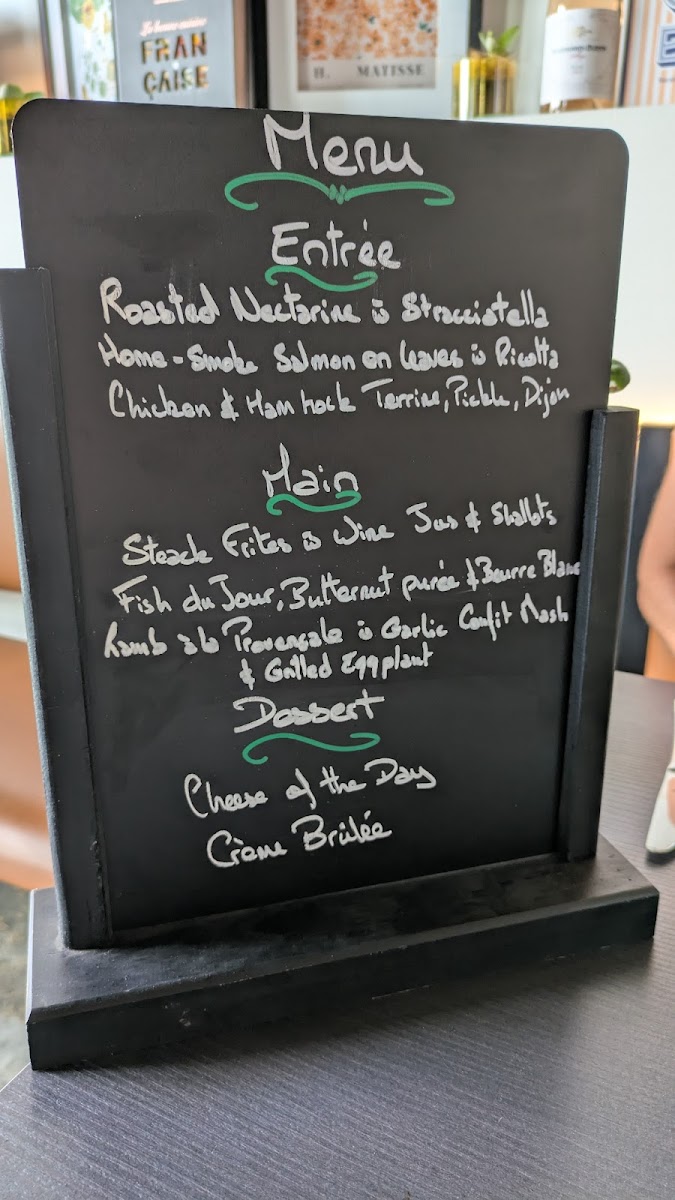 La bonne cuisine
FRAN
ÇAISE
H. MATISSE
Menu
Entrée
Roasted Nectarine is Stracciatella
Home-Smoke Salmon on leaves is Ricotta
Chicken & Ham hock Terrine, Pickle, Dijon
Main
Steack Frites is Wine Jus & Shallots
Fish du Jour, Butternut purée & Beurre Blanc
Lamb à la Provençale is Garlic Confit Mash
& Grilled Eggplant
Dessert
Cheese of the Day
Crème Brûlée